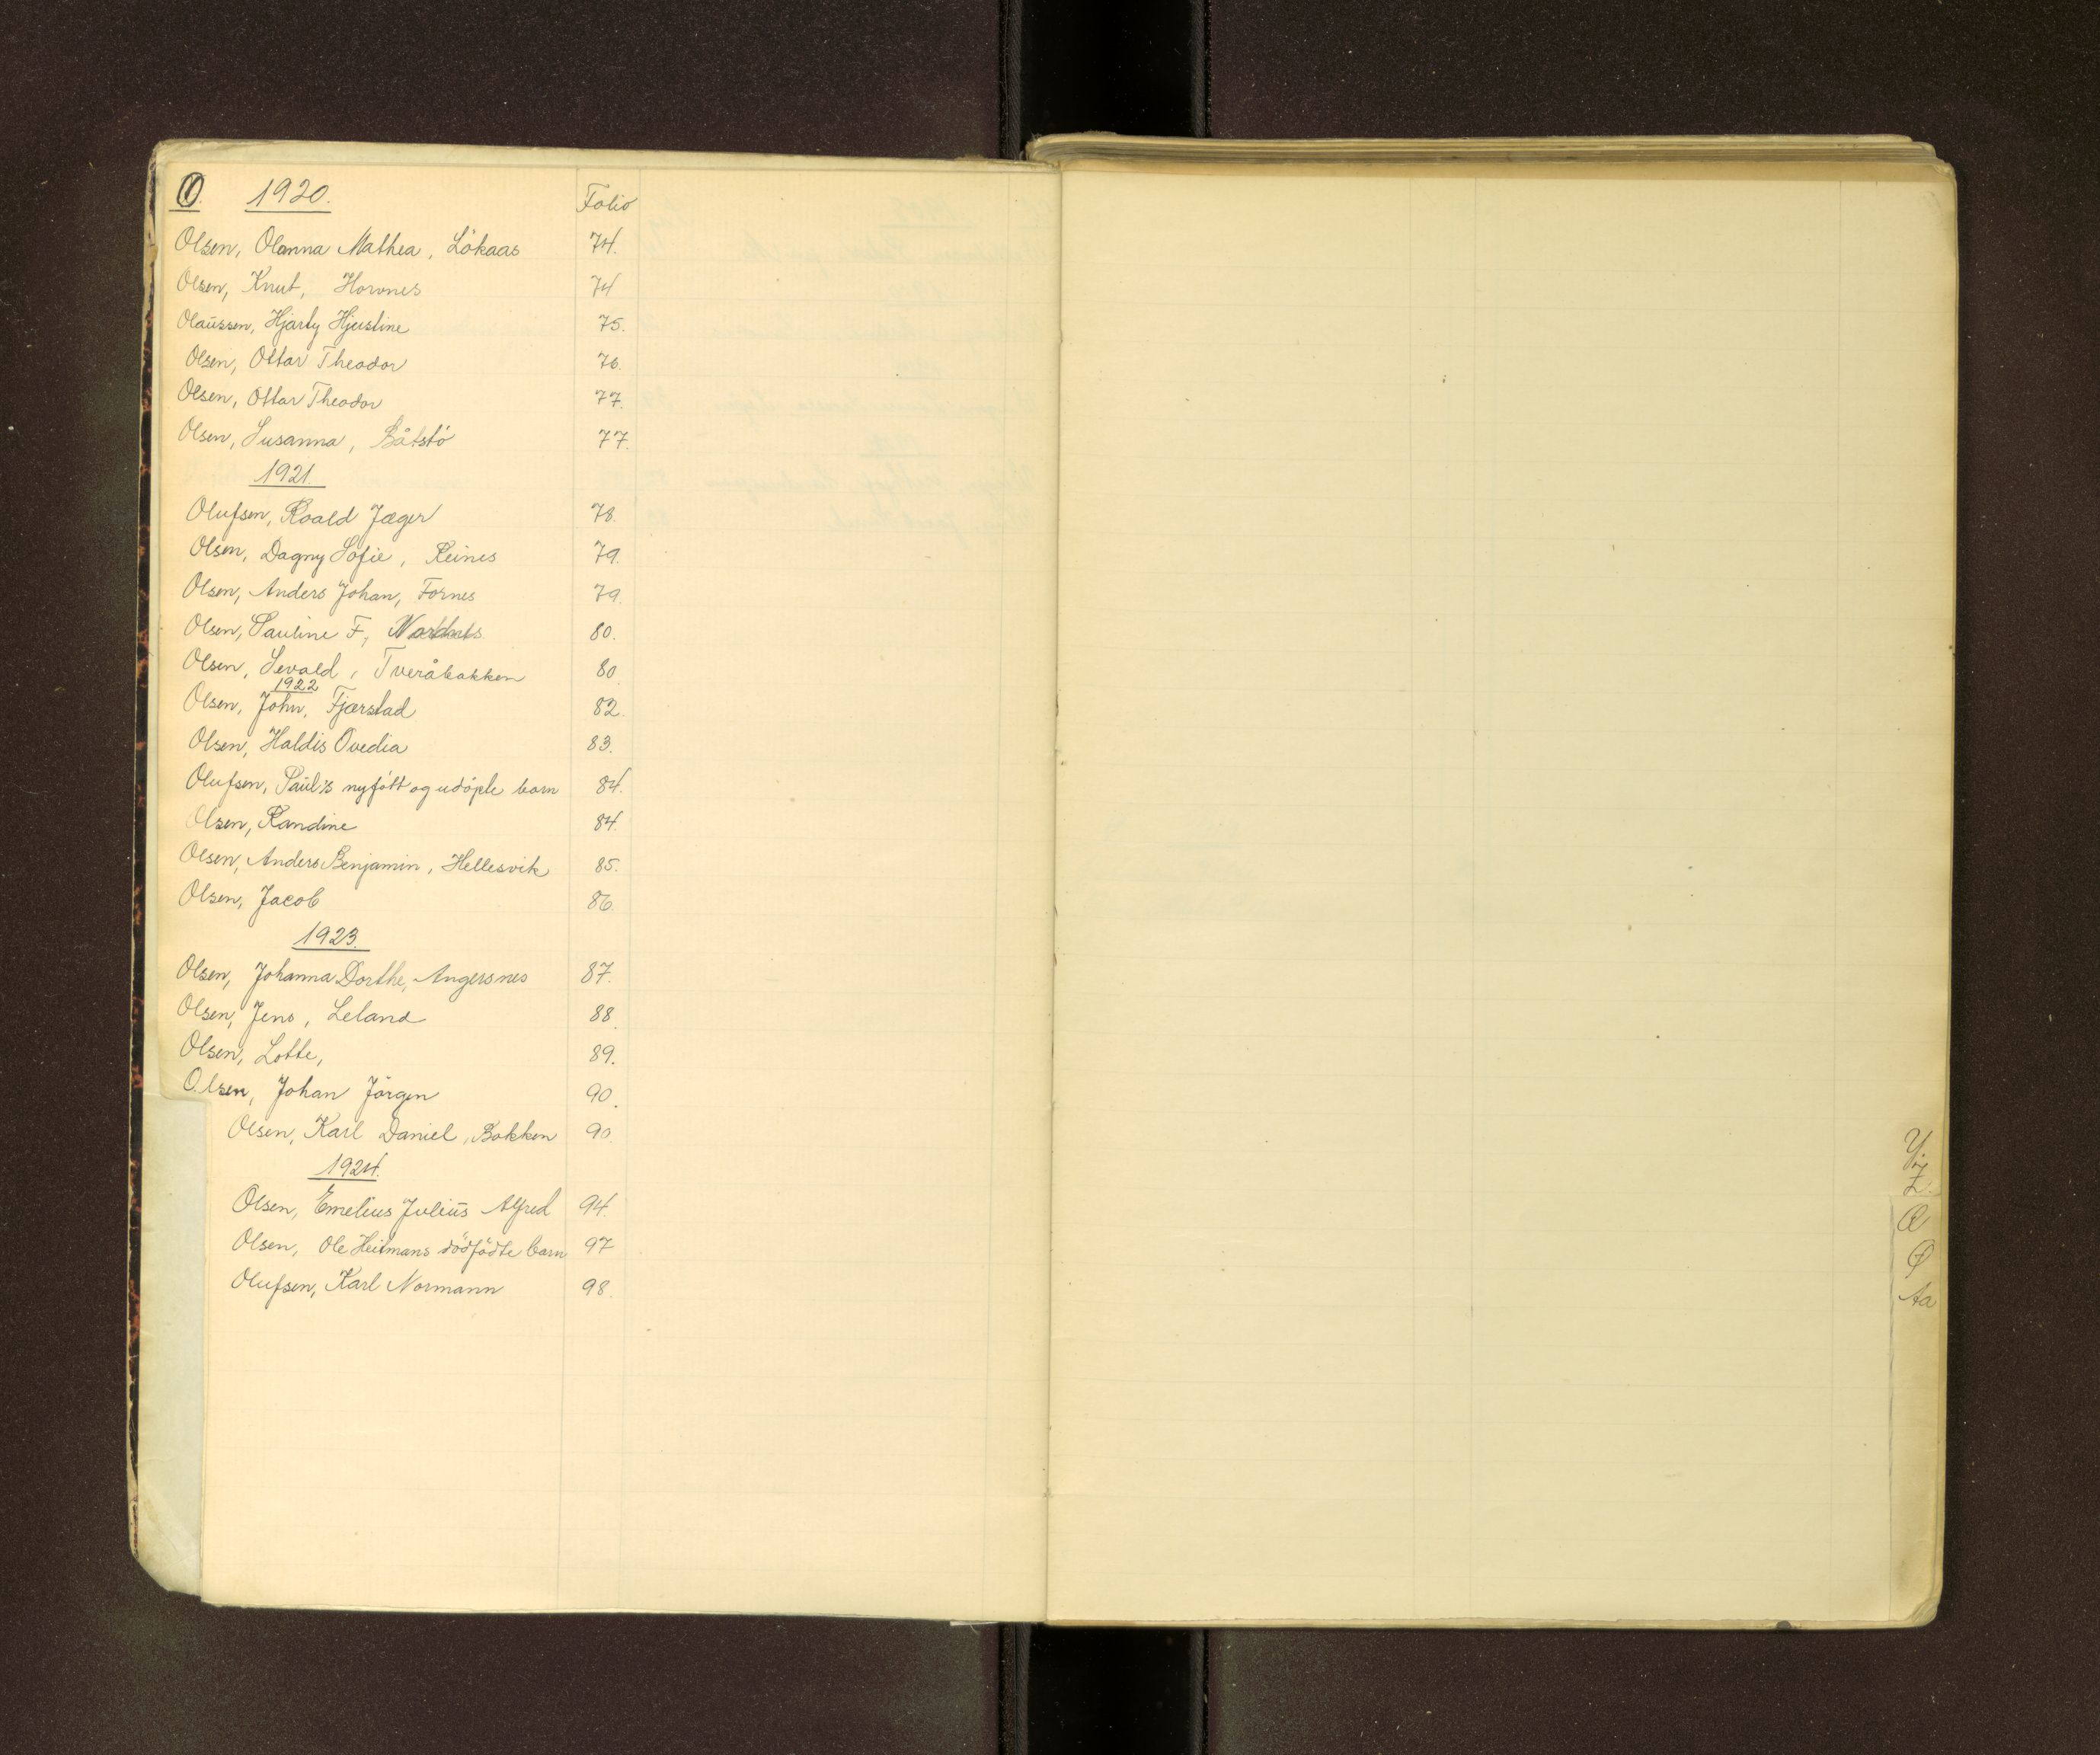 O. 1920. Folio
Olsen, Olanna Mathea, Lökaas 74.
Olsen, Knut, Hovnes 74
Olaussen, Hjarty Hjustine 75.
Olsen, Ottar Theodor 76.
Olsen, Ottar Theodor 77.
Olsen, Susanna, Båtstö 77.
1921.
Olufsen, Roald Jæger 78.
Olsen, Dagny Sofie, Reines 79.
Olsen, Anders Johan, Fornes 79.
Olsen, Pauline F, 80.
Olsen, Sevald, Tveråbakken 80.
1922
Olsen, John, Fjærstad 82.
Olsen, Haldis Ovedia 83.
Olufsen, Paul's nyfött og udöpte barn 84.
Olsen, Randine 84.
Olsen, Anders Benjamin, Hellesvik 85.
Olsen, Jacob 86.
1923.
Olsen, Johanna Dorthe, Angersnes 87.
Olsen, Jens, Leland 88.
Olsen, Lotte, 89.
Olsen, Johan Jörgen 90.
Olsen, Karl Daniel, Bakken 90.
1924.
Olsen, Emelius Julius Alfred 94.
Olsen, Ole Heitmans dödfödte barn 97
Olufsen, Karl Normann 98.
Y.
Z.
Æ
Ø
Aa